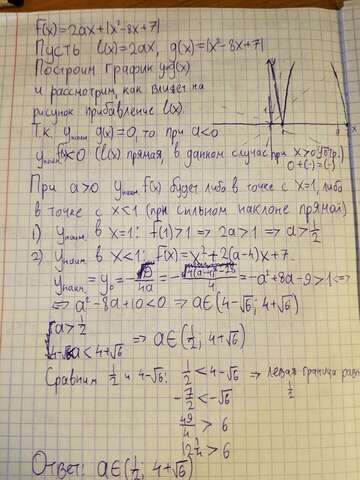 f(x)=2ax+|x²-8x+7|
Пусть l(x)=2ax, g(x)=|x²-8x+7|
Построим график y=g(x)
и рассмотрим, как влияет на
рисунок прибавление l(x).
Т.к. yнаим. g(x)=0, то при a<0
yнаим. f(x)<0 (l(x) прямая, в данном случае при x>0 y<0
0+(-)=(-))
При a>0 yнаим. f(x) будет либо в точке с x=1, либо
в точке с x<1 (при сильном наклоне прямой)
1) yнаим. в x=1: f(1)>1 => 2a>1 => a>1/2
2) yнаим. в x<1: f(x)=x²+2(a-4)x+7
yнаим.=y₀=-D/4a= =-a²+8a-9>1<=>
<=> a²-8a+10<0 => a∈(4-√6; 4+√6)
{a>1/2
4-√6<a<4+√6 => a∈(1/2; 4+√6)
Сравним 1/2 и 4-√6: 1/2<4-√6 => левая граница
1/2
-7/2<-√6
49/4>6
12 1/4>6
Ответ: a∈(1/2; 4+√6)